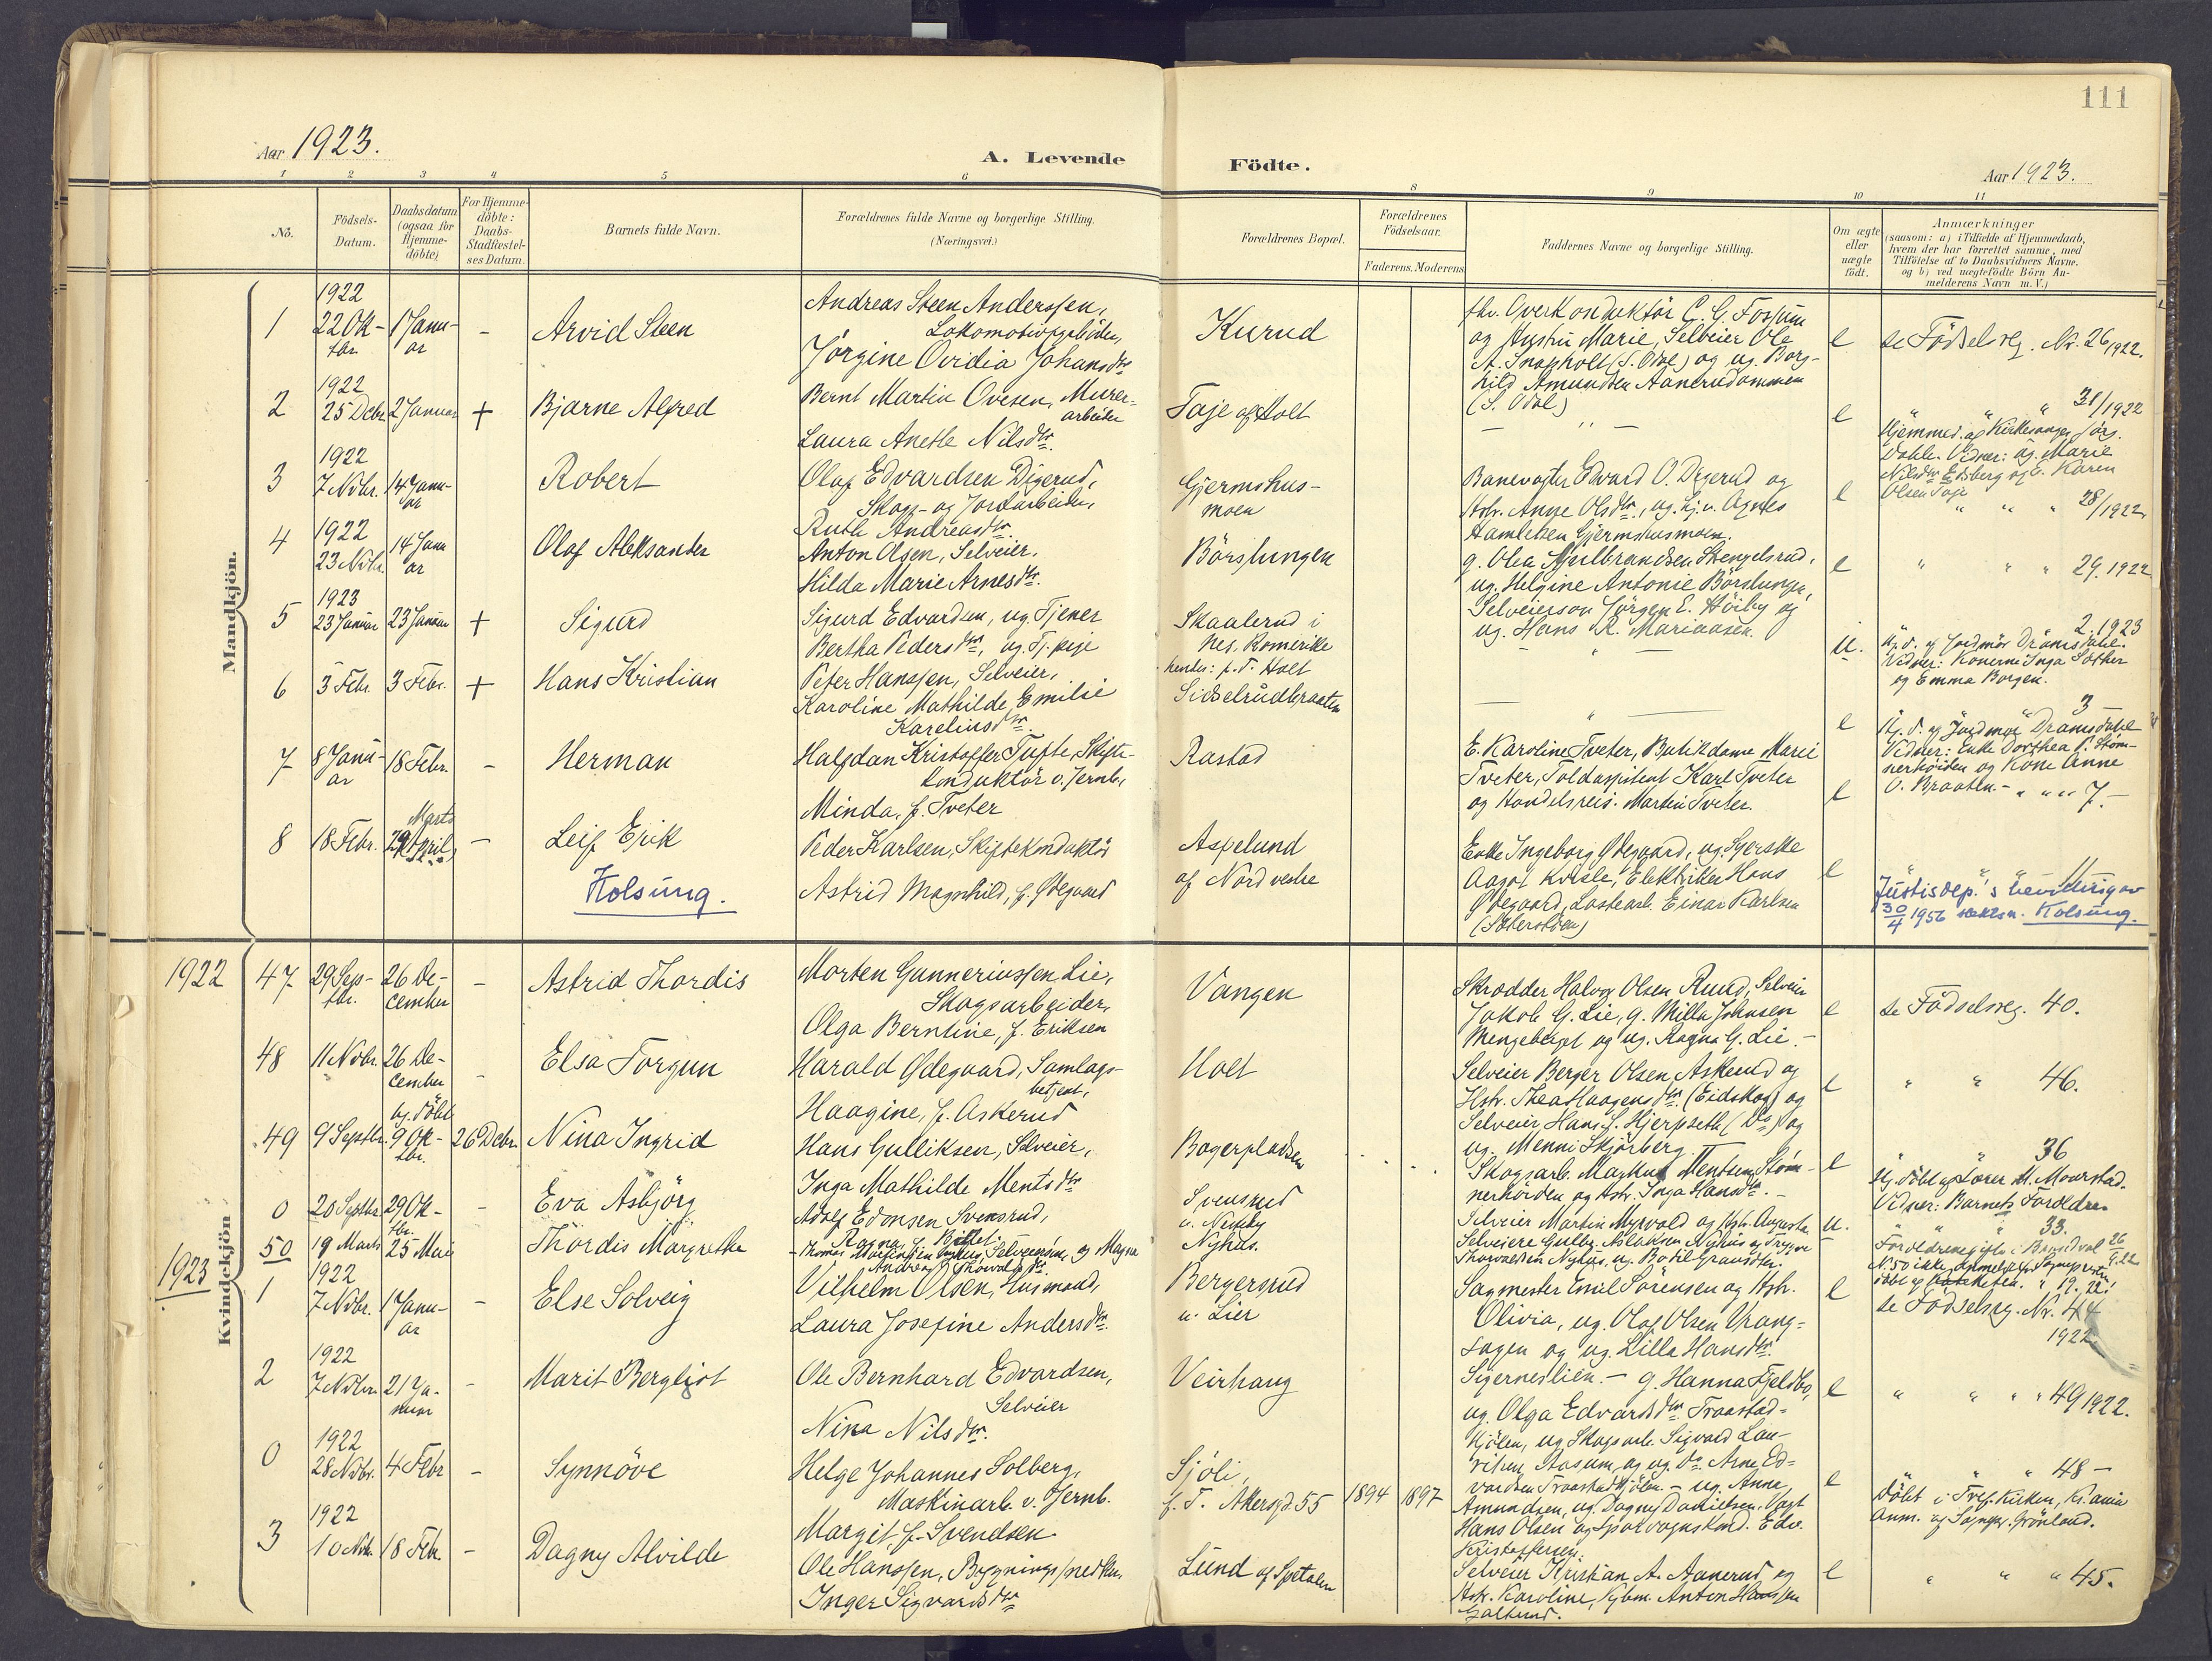 111
Aar 1923.
A. Levende
Födte.
Aar 1923.
1 2 3 4 5 6 8 9 10 11
No.
Födsels-
Datum.
Daabsdatum
(ogsaa for
Hjemme-
döbte)
For Hjemme-
döbte:
Daabs-
Stadfæstel-
ses Datum.
Barnets fulde Navn.
Forældrenes fulde Navne og borgerlige Stilling.
(Næringsvei.)
Forældrenes Bopæl.
Forældrenes
Födselsaar.
Faderens. Moderens
Faddernes Navne og borgerlige Stilling.
Om ægte
eller
uægte
födt.
Anmærkninger
(saasom: a) i Tilfælde af Hjemmedaab,
hvem der har forrettet samme, med
Tilföielse af to Daabsvidners Navne.
og b) ved uægtefödte Börn An-
melderens Navn m. V.)
Mandkjön.
1
1922
22 Ok-
tbr.
1 Janu-
ar
-
Arvid Steen
Andreas Steen Anderssen,
Lokomotivpudser,
Jörgine Ovidia Johansdtr
Kurud
fhv. Overkonduktör C. G. Fossum
og Hustru Marie, Selveier Ole
A. Snapholt (S. Odal) og ug. Borg-
hild Amundsen Aanerudommen
(S. Odal)
e
se Födselreg. Nr. 26/1922.
2
1922
25 Debr.
2 Januar
+
Bjarne Alfred
Bernt Martin Ovesen, Murer-
arbeider
Laura Anette Nilsdtr.
Taje af Holt
— " —
e
" " " 31/1922
Hjemmed. af Kirkesanger Jörg.
Dahle. Vidner: ug. Marie
Nilsdtr Edsberg og e. Karen
Olsen Taje
3
1922
7 Novbr.
14 Janu-
ar
Robert
Olaf Edvardsen Digerud,
Skogs- og Jordarbeider,
Ruth Andreasdtr.
Gjermshus-
moen
Banevogter Edvard O. Digerud og
Hstr. Anne Olsdtr., ug. Hj. v. Agnes
Hamletsen Gjermshusmoen.
e
" " " 28/1922
4
1922
23 Novbr.
14 Janu
ar
Olaf Aleksander
Anton Olsen, Selveier,
Hilda Marie Arnesdtr.
Börslungen
g. Olea Gulbrandsen Stengelsrud,
ug. Helgine Antonie Börslungen,
Selveiersön Jörgen E. Höiby og
ug. Hans R. Mariaasen.
e
" " " 29.1922
5
1923
23 Januar
23 Januar
+
Sigurd
Sigurd Edvardsen, ug. Tjener
Bertha Pedersdtr, ug. Tj. pige
Skaalerud i
Nes, Romerike
hendes: p. T. Holt
— " —
u.
2.1923
Hj. d. af Jordmor Dramsdahl.
Vidner: Konerne Inga Sæther
og Emma Borgen.
6
3 Febr.
3 Febr.
+
Hans Kristian
Peter Hanssen, Selveier,
Karoline Mathilde Emilie
Kareliusdtr
Sidselrudbraaten
— " —
e
3 -
Hj. d. af Jordmor Dramsdahl
Vidner: Enke Dorthea P. Ström-
nerhöiden og Kone Anne
O. Braaten.
7
8 Janu-
ar
18 Febr.
-
Herman
Halfdan Kristoffer Tufte, Skifte-
konduktör v. Jernb.,
Minda, f. Tveter
Rastad
E. Karoline Tveter, Butikdame Marie
Tveter, Toldassistent Karl Tveter
og Handelsreis. Martin Tveter.
e
- " " " 7.-
8
18 Febr.
Marts
29 April
-
Leif Erik
Kolsung.
Peder Karlsen, Skiftekonduktör
Astrid Magnhild, f. Ödegaard
Aspelund
af Nord vestre
Enke Ingeborg Ödegaard, ug. Syerske
Aagot Kvisle, Elektriker Hans
Ödegaard, Lastearb. Einar Karlsen
(Sæterstöen)
e
" " 11
Justisdep.'s bevilling av
30/4 1956 slektsn. Kolsung.
Kvindekjön
1922
47
29 Sep-
tbr.
26 De-
cember
-
Astrid Thordis
Morten Gunneriussen Lie,
Skogsarbeider,
Olga Berntine, f. Eriksen
Vangen
Skrædder Halvor Olsen Ruud, Selveier
Jakob G. Lie, g. Milla Johnsen
Mengeberget og ug. Ragna G. Lie. -
e
se Födselsreg. 40.
48
11 Novbr.
26 De-
cember
-
Elsa Torgun
Harald Ödegaard, Samlags-
betjent,
Haagine, f. Askerud
Holt
Selveier Berger Olsen Askerud og
Hstr. Thea Haagensdtr. (Eidskog) og
Selveier Hans L. Hjerpseth (Do) og
ug. Menni Skjörberg
e
" " 46.
49
9 Septbr.
hj. döbt
9 Ok-
tbr.
26 Debr.
Nina Ingrid
Hans Gulliksen, Selveier,
Inga Mathilde Mentsdtr
Bagerpladsen
Skogsarb. Markus Mentsen Ström-
nerhöiden og Hstr. Inga Hansdtr. -
e
36
Hj. döbt af Lærer M. Mourstad.
Vidner: Barnets Forældre.
0
20 Septbr.
29 Ok-
tbr.
-
Eva Asbjörg
Adolf Edonsen Svensrud,
Ragna, f. Bittet.
Svensrud
u. Nessby
Selveier Martin Myrvold og Hstr. Augusta
u.
" " 33.
50
19 Marts
25 Mai
Thordis Margrethe
Nyhus.
1923
1
1922
7 Novbr.
1 Janu-
ar
-
Else Solveig
Vilhelm Olsen, Husmand,
Laura Josefine Andersdtr.
Bergersrud
u. Lier
Sagmester Emil Sörensen og Hstr.
Olivia, ug. Olaf Olsen Vrang-
sagen og ug. Lilla Hansdtr.
Sigerneslien. -
e
se Födselsreg. Nr. 44
1922.
2
1922
7 Novbr.
21 Ja-
nuar
-
Marit Bergljot
Ole Bernhard Edvardsen,
Selveier
Nina Nilsdtr.
Veirhaug
g. Hanna Fjeldbo,
ug. Olga Edvardsdtr Traastad-
kjölen, ug. Skogsarb. Sigvald Lau-
ritsen Aasum, og ug. do. Arne Ed-
vardsen Traastadkjölen. -
e
" " " 49 1922.
0
1922
28 Novbr.
4 Febr
-
Synnöve
Helge Johannes Solberg,
Maskinarb. v. Jernb.
Margit, f. Svendsen
Sjöli,
f. T. Akersgd. 55
1894
1897
ug. Anna
Amundsen, ug. Dagny Danielsen, Vogt
Hans Olsen og Sporvognskond. Edv.
Kristoffersen.
e
" " 48 -
Döbt i Tref. Kirken, Kr.ania
Anm. af Sognepr. Grönland.
3
1922
10 Nvbr.
18 Feb.
-
Dagny Alvilde
Ole Hanssen, Bygningssnedker,
Inger Sigvardsdtr
Lund af Spetalen
Selveier Kristian A. Aanerud og
Hstr. Karoline, Gbm. Anton Hanssen
Galtrud.
e
" " " 45.